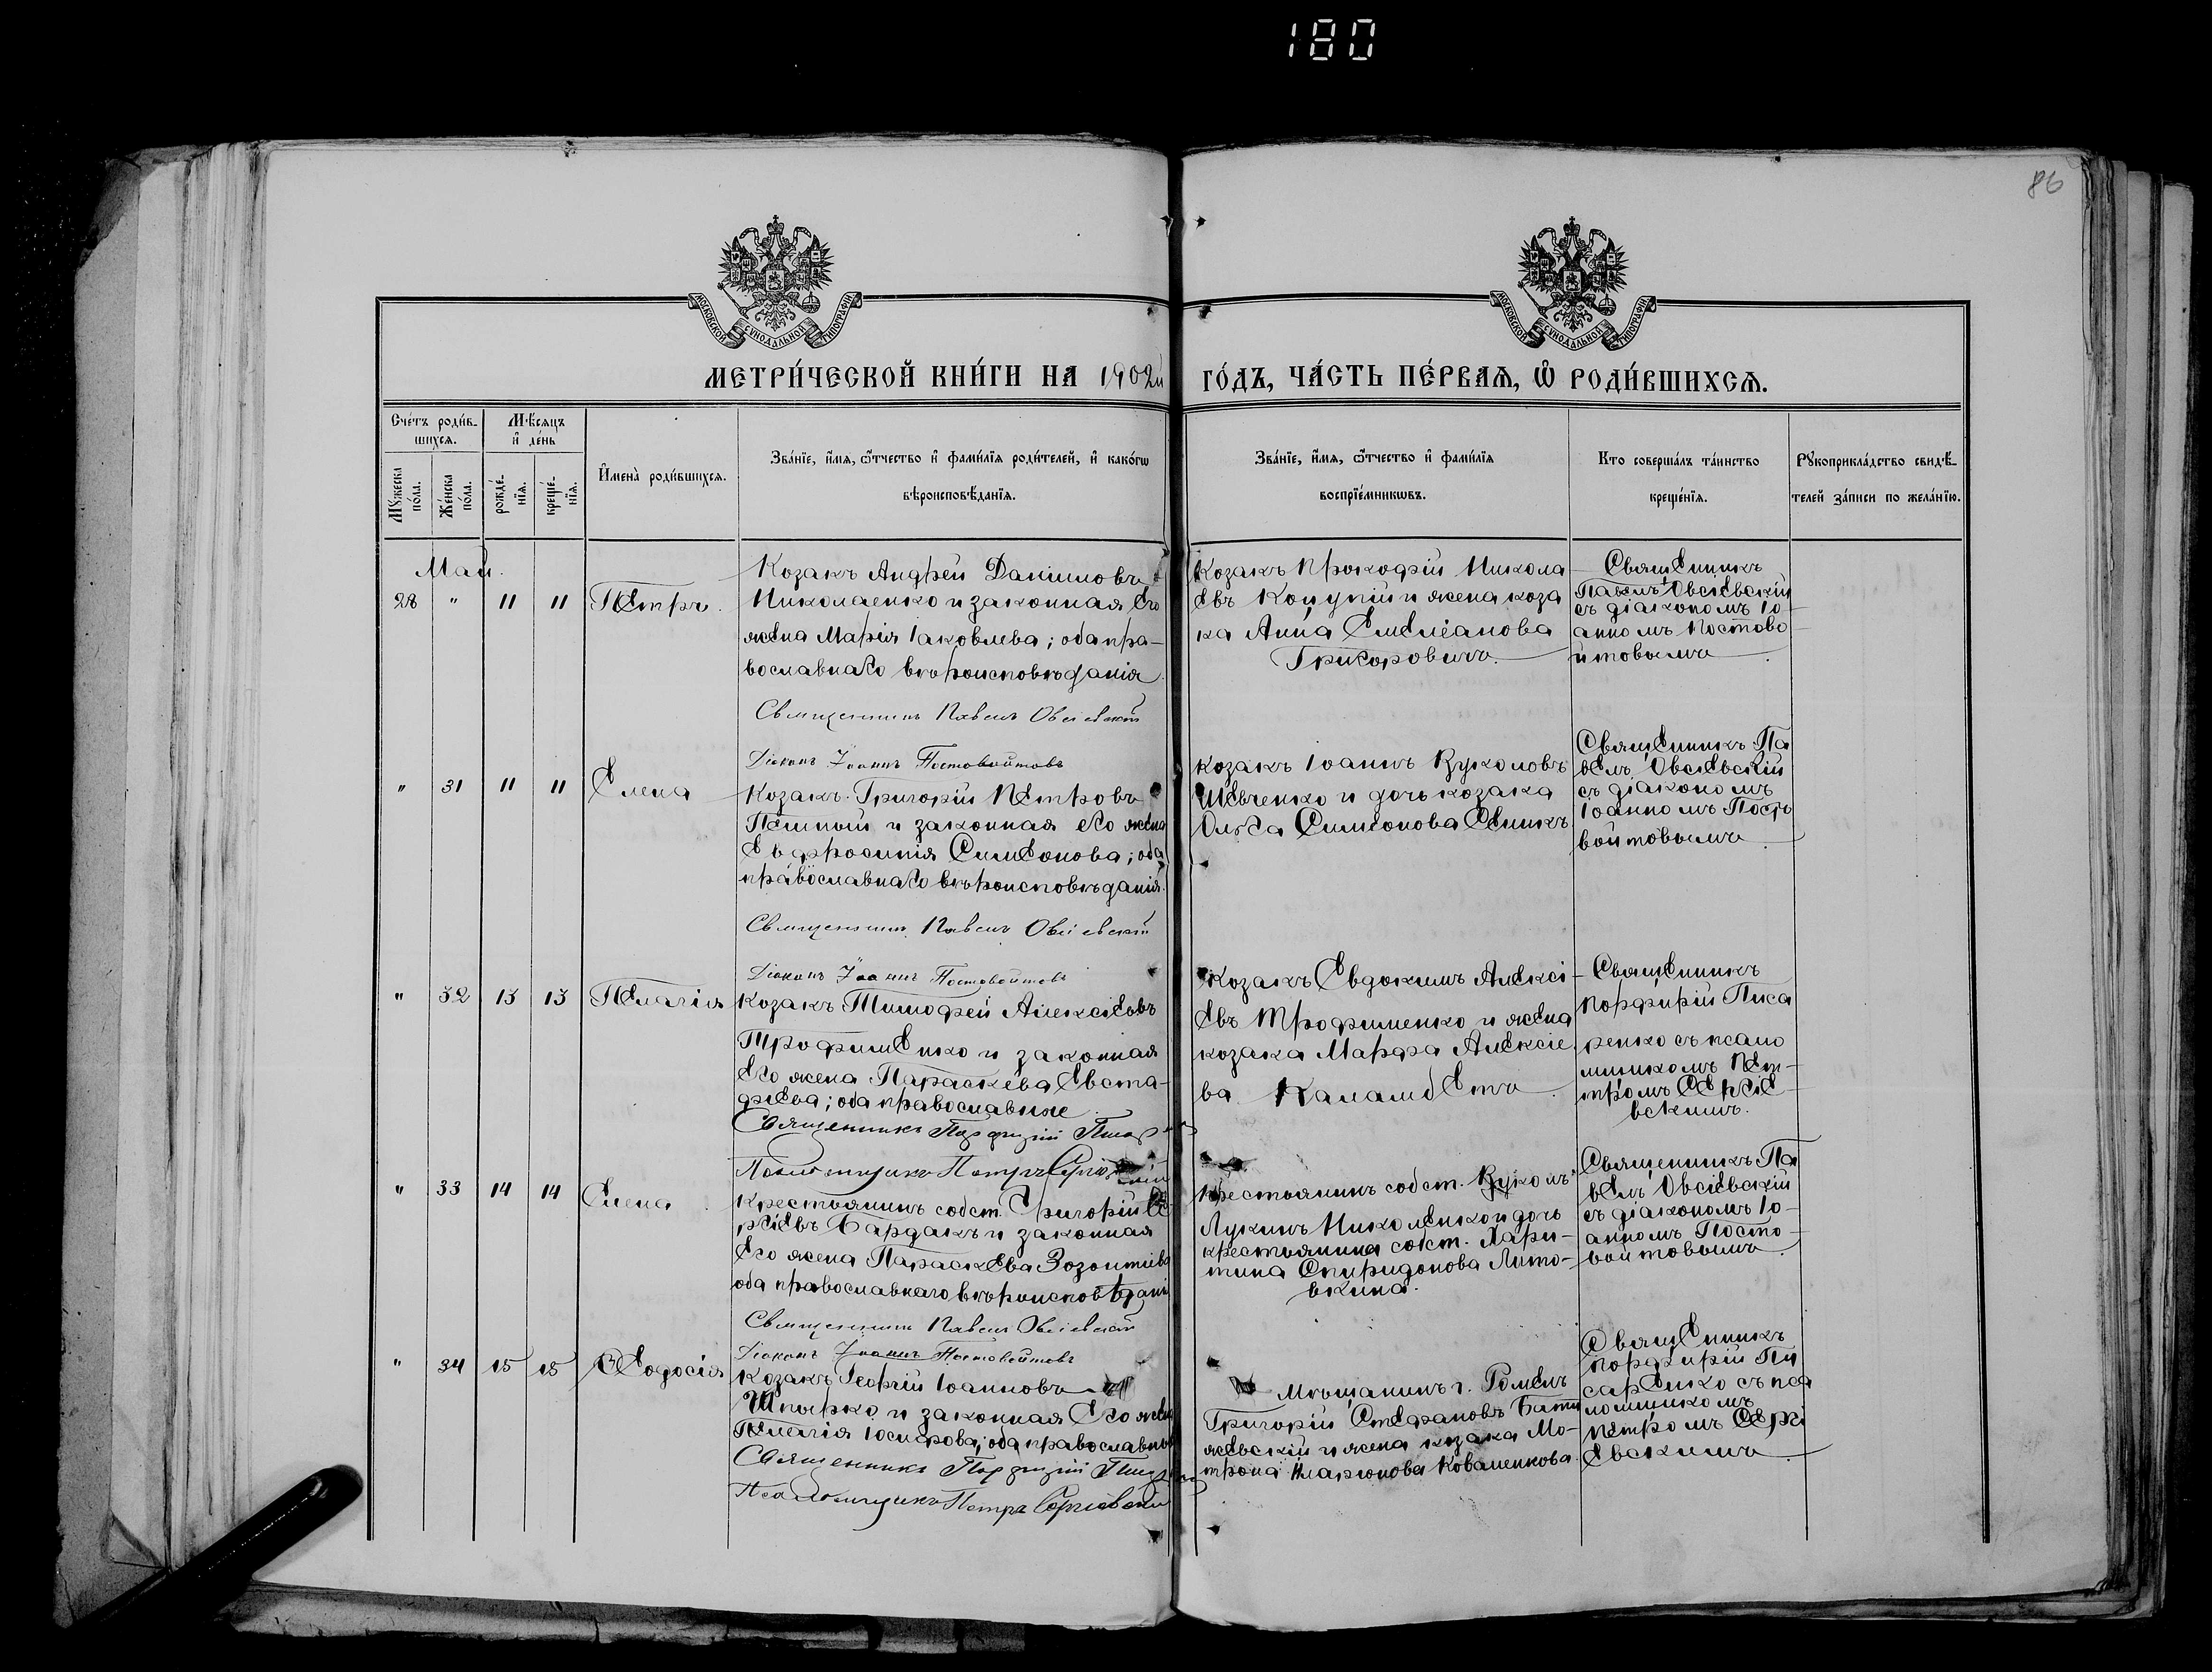 180
86
МОСКОВСКОЙ СѴНОДАЛЬНОЙ ТИПОГРАФІИ
МОСКОВСКОЙ СѴНОДАЛЬНОЙ ТИПОГРАФІИ
МЕТРИ́ЧЕСКОЙ КНИ́ГИ НА 1902й ГО́ДЪ, ЧА́СТЬ ПЕ́РВАЯ, Ѽ РОДИ́ВШИХСѦ.
Сче́тъ роди́в-
шихсѧ.
Мꙋ́жеска по́ла.
Же́нска по́ла.
Мѣ́сѧцъ
и҆ де́нь
рожде́-
нїѧ.
креще́-
нїѧ.
И҆мена̀ роди́вшихсѧ.
Зва́нїе, и҆́мѧ, ѻ҆́тчество и҆ фами́лїѧ роди́телей, и҆ како́гѡ
вѣроисповѣ́данїѧ.
Зва́нїе, и҆́мѧ, ѻ҆́тчество и҆ фами́лїѧ
воспрїе́мникѡвъ.
Кто соверша́лъ та́инство
креще́нїѧ.
Рꙋкоприкла́дство свидѣ́-
телей за́писи по жела́нїю.
Май.
28 " 11 11 Петръ.
Козакъ Андрей Данииловъ
Николаенко и законная его
жена Марія Іаковлева; оба пра-
вославнаго вѣроисповѣданія.
Священникъ Павелъ Овсіевскій
Діаконъ Іоаннъ Постовойтовъ
Козакъ Прокофій Никола
евъ Коцупій и жена коза
ка Анна Емеліанова
Григоровичъ.
Священникъ
Павелъ Овсіевскій
съ діакономъ Іо-
анномъ Постово
йтовымъ.
" 31 11 11 Елена
Козакъ Григорій Петровъ
и законная его жена
Евфросинія Симеонова; оба
православнаго вѣроисповѣданія.
Священникъ Павелъ Овсіевскій
Діаконъ Іоаннъ Постовойтовъ
Козакъ Іоаннъ Вуколовъ
Шевченко и дочь козака
Ольга Симеонова
Священникъ Па
велъ Овсіевскій
съ діакономъ
Іоанномъ Посто
войтовымъ.
" 32 13 13 Пелагія
Козакъ Тимофей Алексіевъ
Трофименко и законная
его жена Параскева Евста-
фіева; оба православные.
Священникъ Порфирій
Псаломщикъ Петръ
Козакъ Евдокимъ Алексі-
евъ Трофименко и жена
козака Марфа Алексіе
ва Каламбетъ.
Священникъ
Порфирій Писа
ренко съ псало
мщикомъ Пет-
тромъ Сергіе
вскимъ.
" 33 14 14 Елена
Крестьянинъ собст. Григорій Се
ргіевъ Бардакъ и законная
его жена Параскева Зозимтіева
оба православнаго вѣроисповѣданія
Священникъ Павелъ Овсіевскій
Діаконъ Іоаннъ Постовойтовъ
Крестьянинъ собст. Вуколъ
Лукинъ Николенко и дочь
крестьянина собст. Хари-
тина Спиридонова Лито-
вкина.
Священникъ Па
велъ Овсіевскій
съ діакономъ Іо-
анномъ Посто-
войтовымъ.
" 34 15 15 Ѳеодосія
Козакъ Георгій Іоанновъ
Шпырко и законная его жена
Пелагія Іосифова; оба православные
Священникъ Порфирій
Псаломщикъ Петръ Сергіевскій
Мѣщанинъ г. Роменъ
Григорій Стефановъ
жевскій и жена козака Мо-
трона Иларіонова Коваленкова.
Священникъ
Порфирій Пи
саренко съ пса
ломщикомъ
Петромъ Сергі
евскимъ.